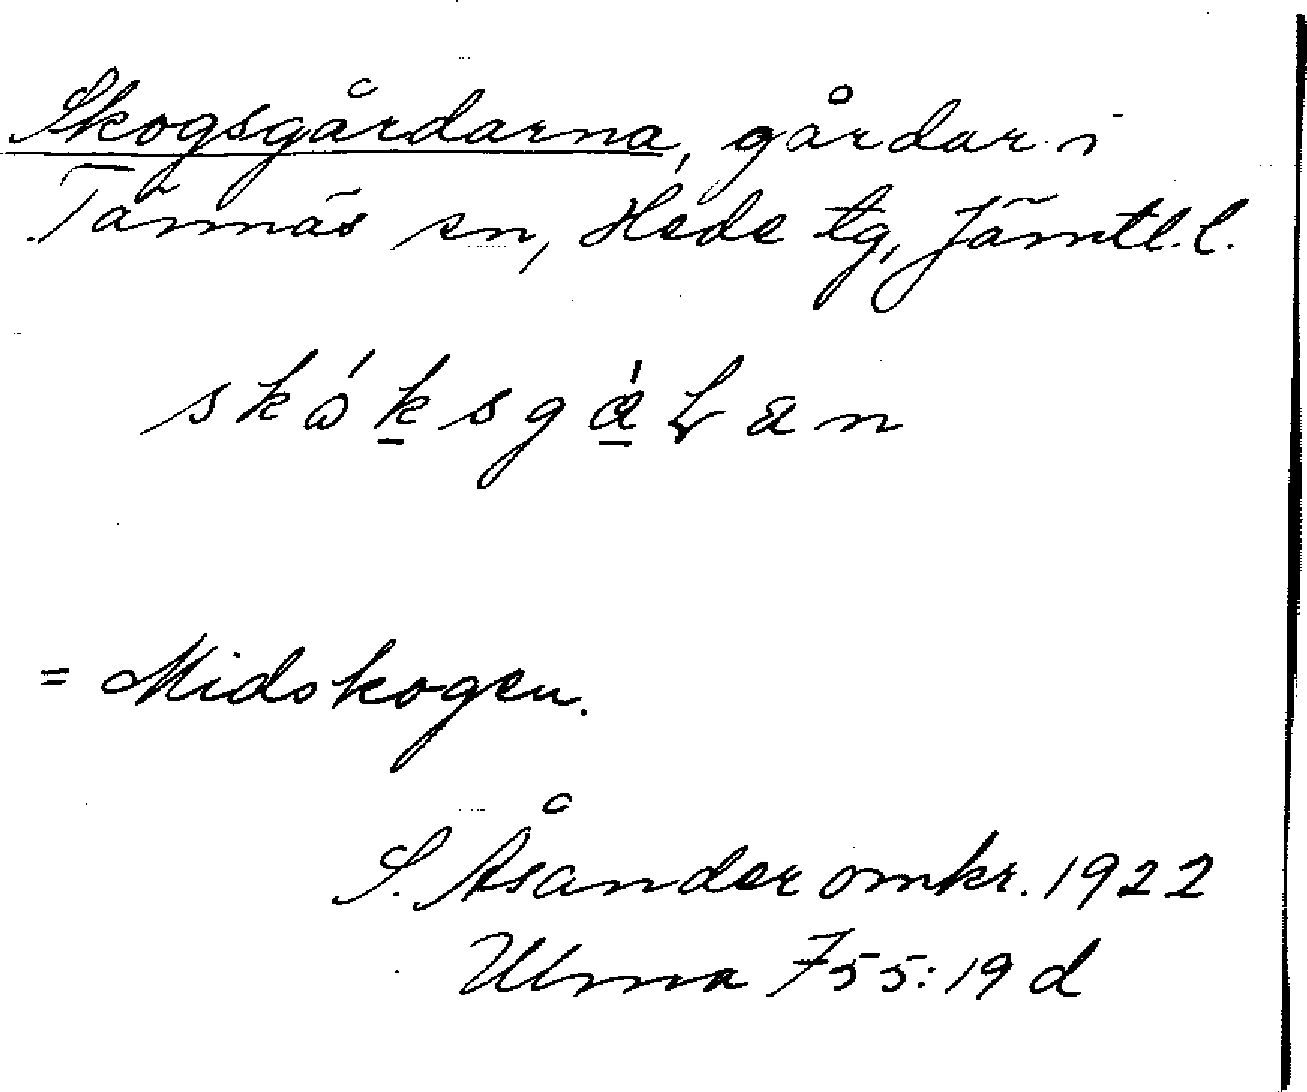 Skogsgårdarna, gårdar i
Tännäs sn, Hede tg, Jämtl. l.
= Midskogen.
S. Åsander omkr. 1922
Ulma 755:19 d